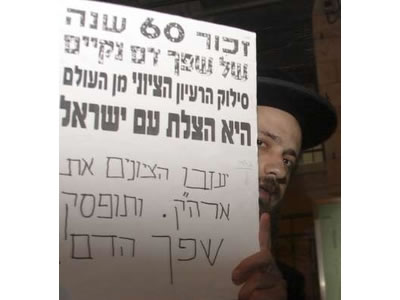 זכור 60 שנה
של שפך דם נקיים
סילוק הרעיון הציוני מן העולם
היא הצלת עם ישראל
יעזבו הציונים את
ארה"ק. ותופסק
שפך הדם.